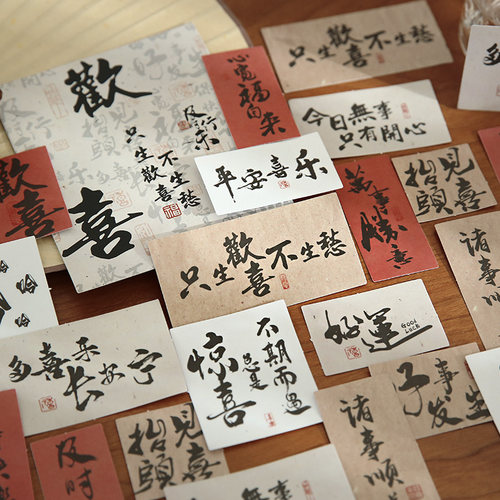 歡
喜
只生歡喜不生愁
福
心宽福自来
只生歡喜不生愁
今日無事
只有開心
平安喜乐
見喜
抬頭
萬事勝意
歡喜
只生歡喜不生愁
諸事
好運
GOOD
LUCK
多喜乐
长安宁
惊喜
总是
不期而遇
好事
发生
諸事順
見喜
抬頭
及时
多